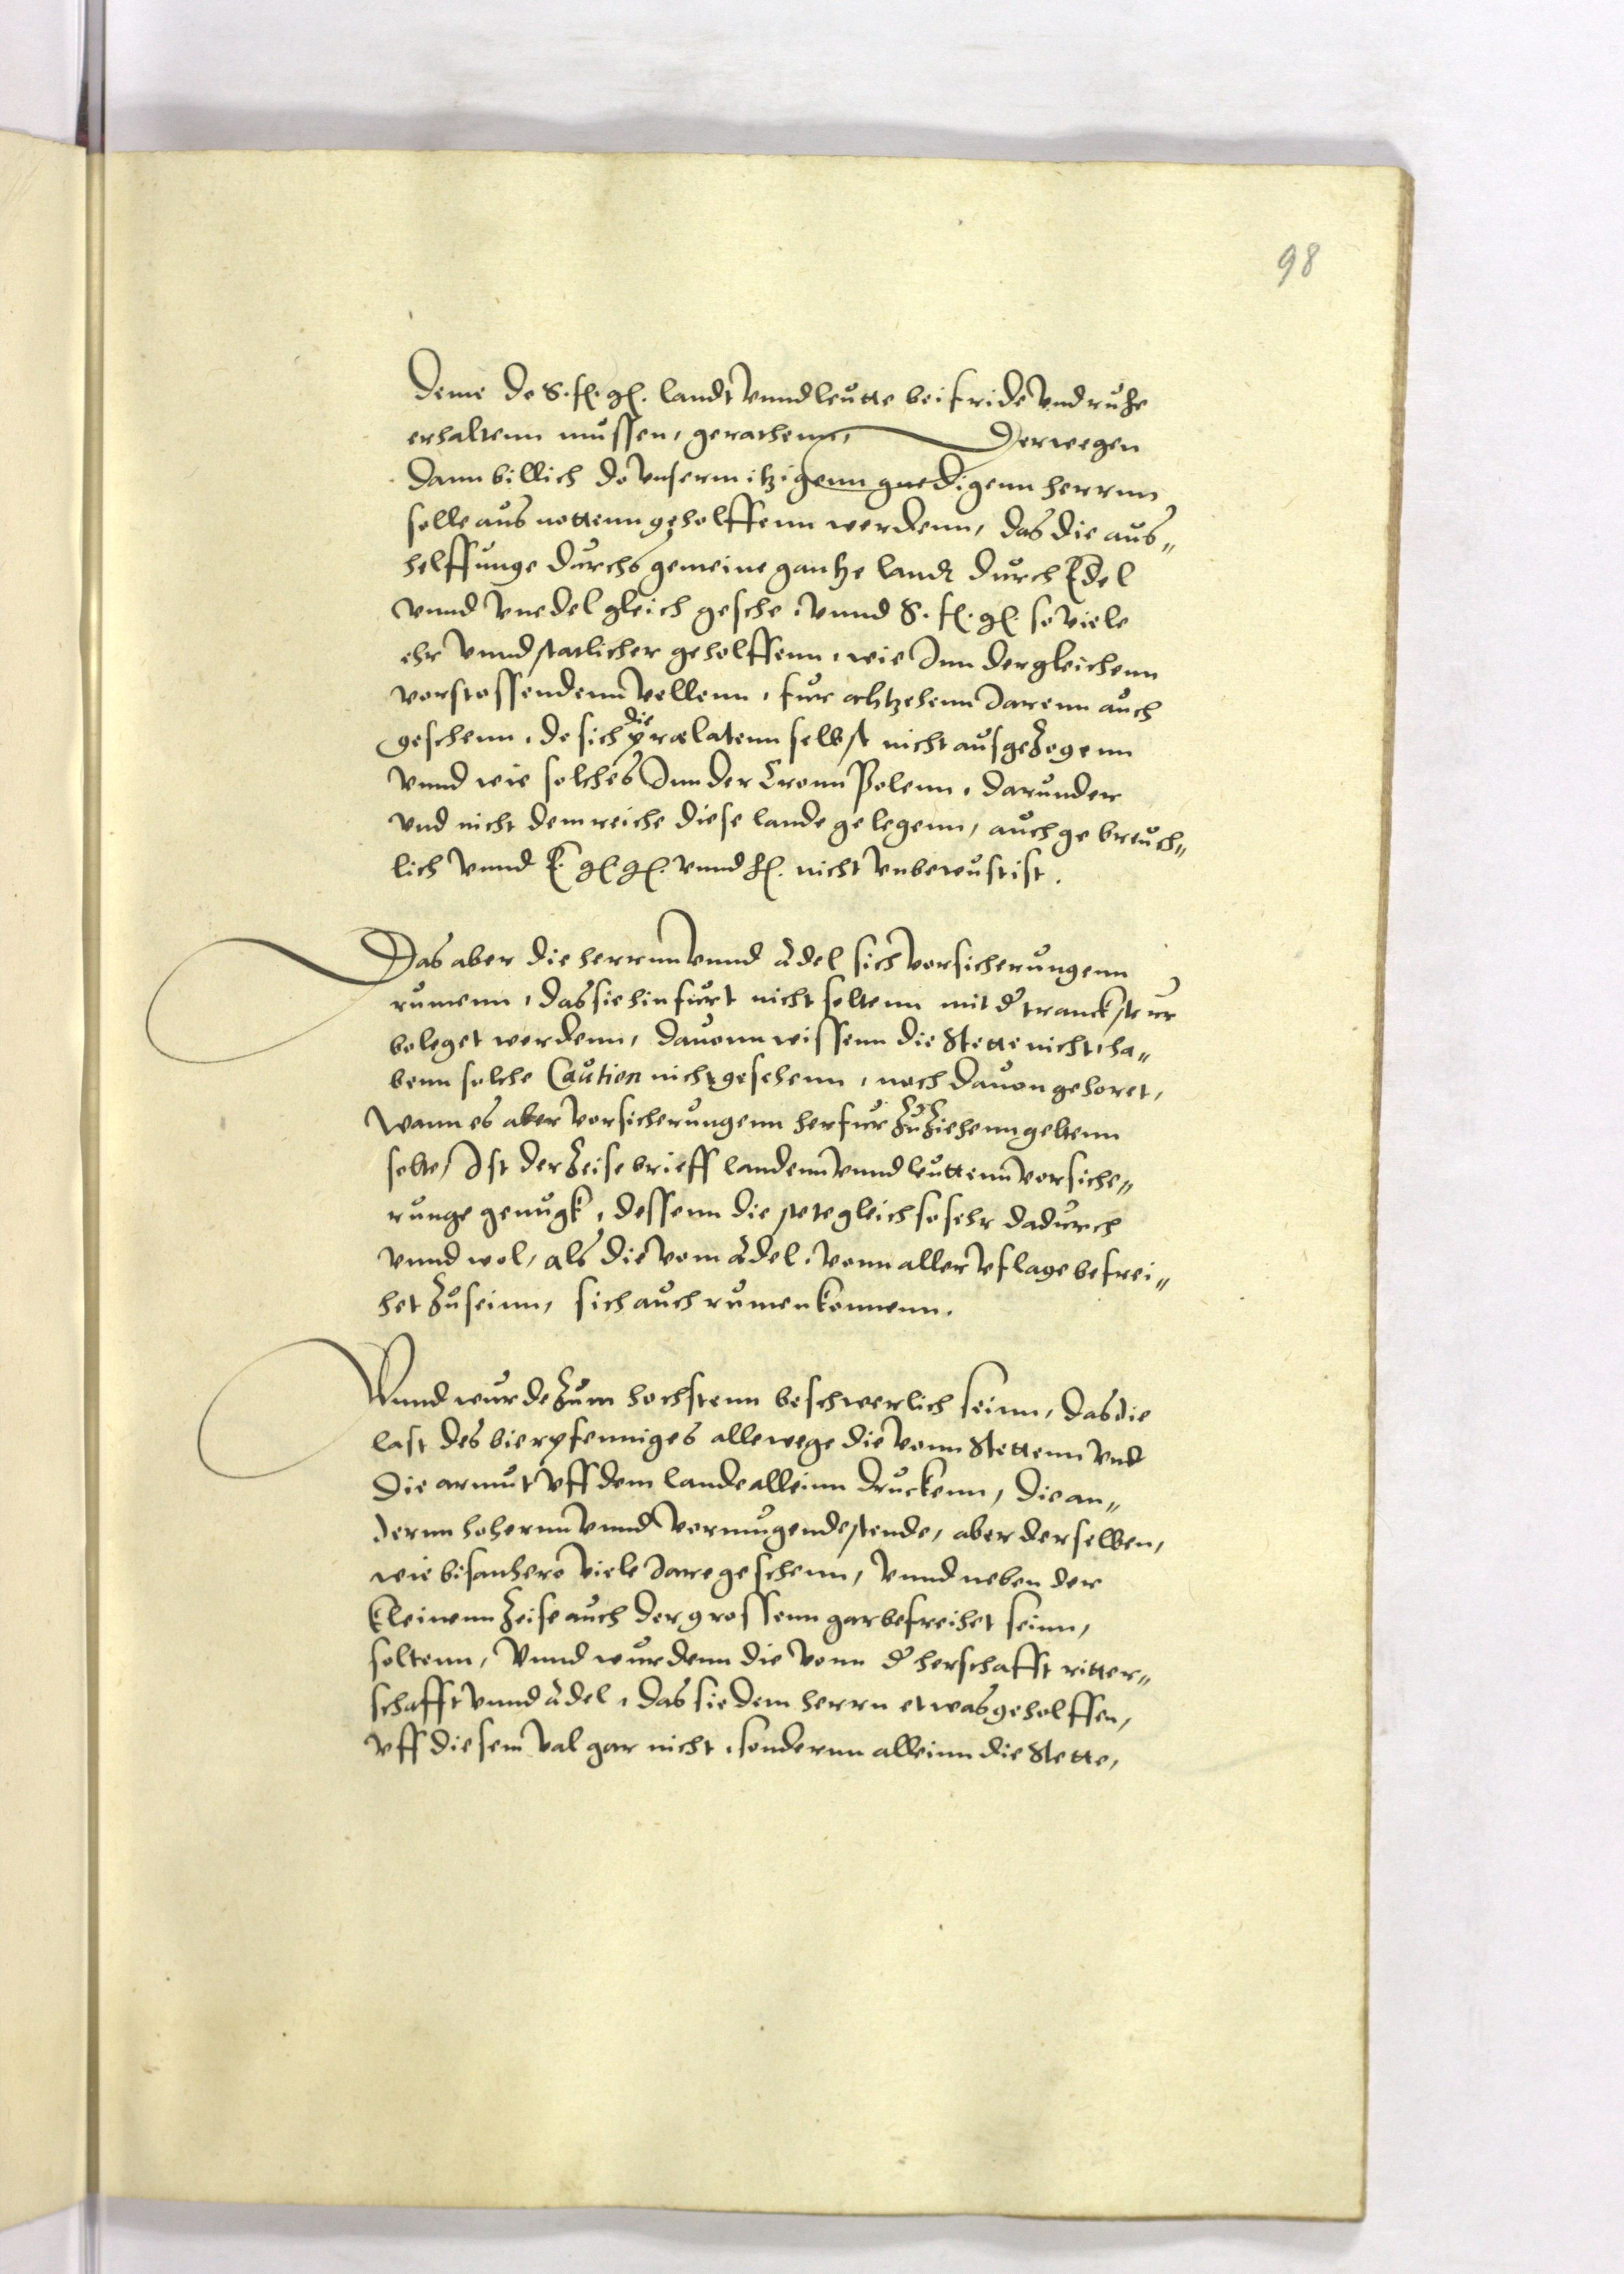 98
deme do S. fl. gl. landt vnnd leutte bei fride vnd ruhe
erhaltenn mussen, gerathenn, Derwegen
dann billich do vnserm itzigenn gnedigenn herrnn
solle aus nottenn geholffenn werdenn, das die aus„
helffunge durchs gemeine gantze landt durch Edel
vnnd vnedel gleich gesche, vnnd S. fl. gl. so viele
ehr vnnd statlicher geholffenn, wie Inn dergleichenn
vorstossendenn vellenn, fur achtzehenn Jarenn auch
geschenn, do sich die prælatenn selbst nicht ausgezogenn
vnnd wie solches Inn der Cronn Polenn, darunder
vnd nicht dem reiche diese lande gelegenn, auch gebreuch„
lich vnnd E. gl. gl. vnnd fl. nicht vnbewust ist.
Das aber die herrnn vnnd Adel sich vorsicherungenn
rumenn, das sie hinfurt nicht soltenn mit der tranckstur
beleget werdenn, dauonn wissenn die Stette nicht, ha„
benn solche Caution nicht gesehenn, noch dauon gehoret,
wann es aber vorsicherungenn herfur zu ziehenn geltenn
solte, Ist der Zeise brieff landenn vnnd leuttenn vorsiche„
runge genugk, dessenn die stete gleich so sehr dadurch
vnnd wol, als die vom Adel, vonn aller vflage befrei„
het zu seinn, sich auch rumen konnenn.
Vnnd wurde zum hochstenn beschwerlich seinn, das die
last des bierpfenniges allewege die vonn Stettenn vnd
die armut vff dem lande alleinn druckenn, die an„
dernn hohernn vnnd vermugende stende, aber derselben,
wie bisanhero viele Jare geschenn, vnnd neben der
kleinenn Zeise auch der grossenn gar befreihet seinn,
soltenn, Vnnd wurdenn die vonn der herschafft ritter„
schafft vnnd Adel, das sie dem herrn etwas geholffen,
vff diesem val gar nicht, sondernn alleinn die Stette,